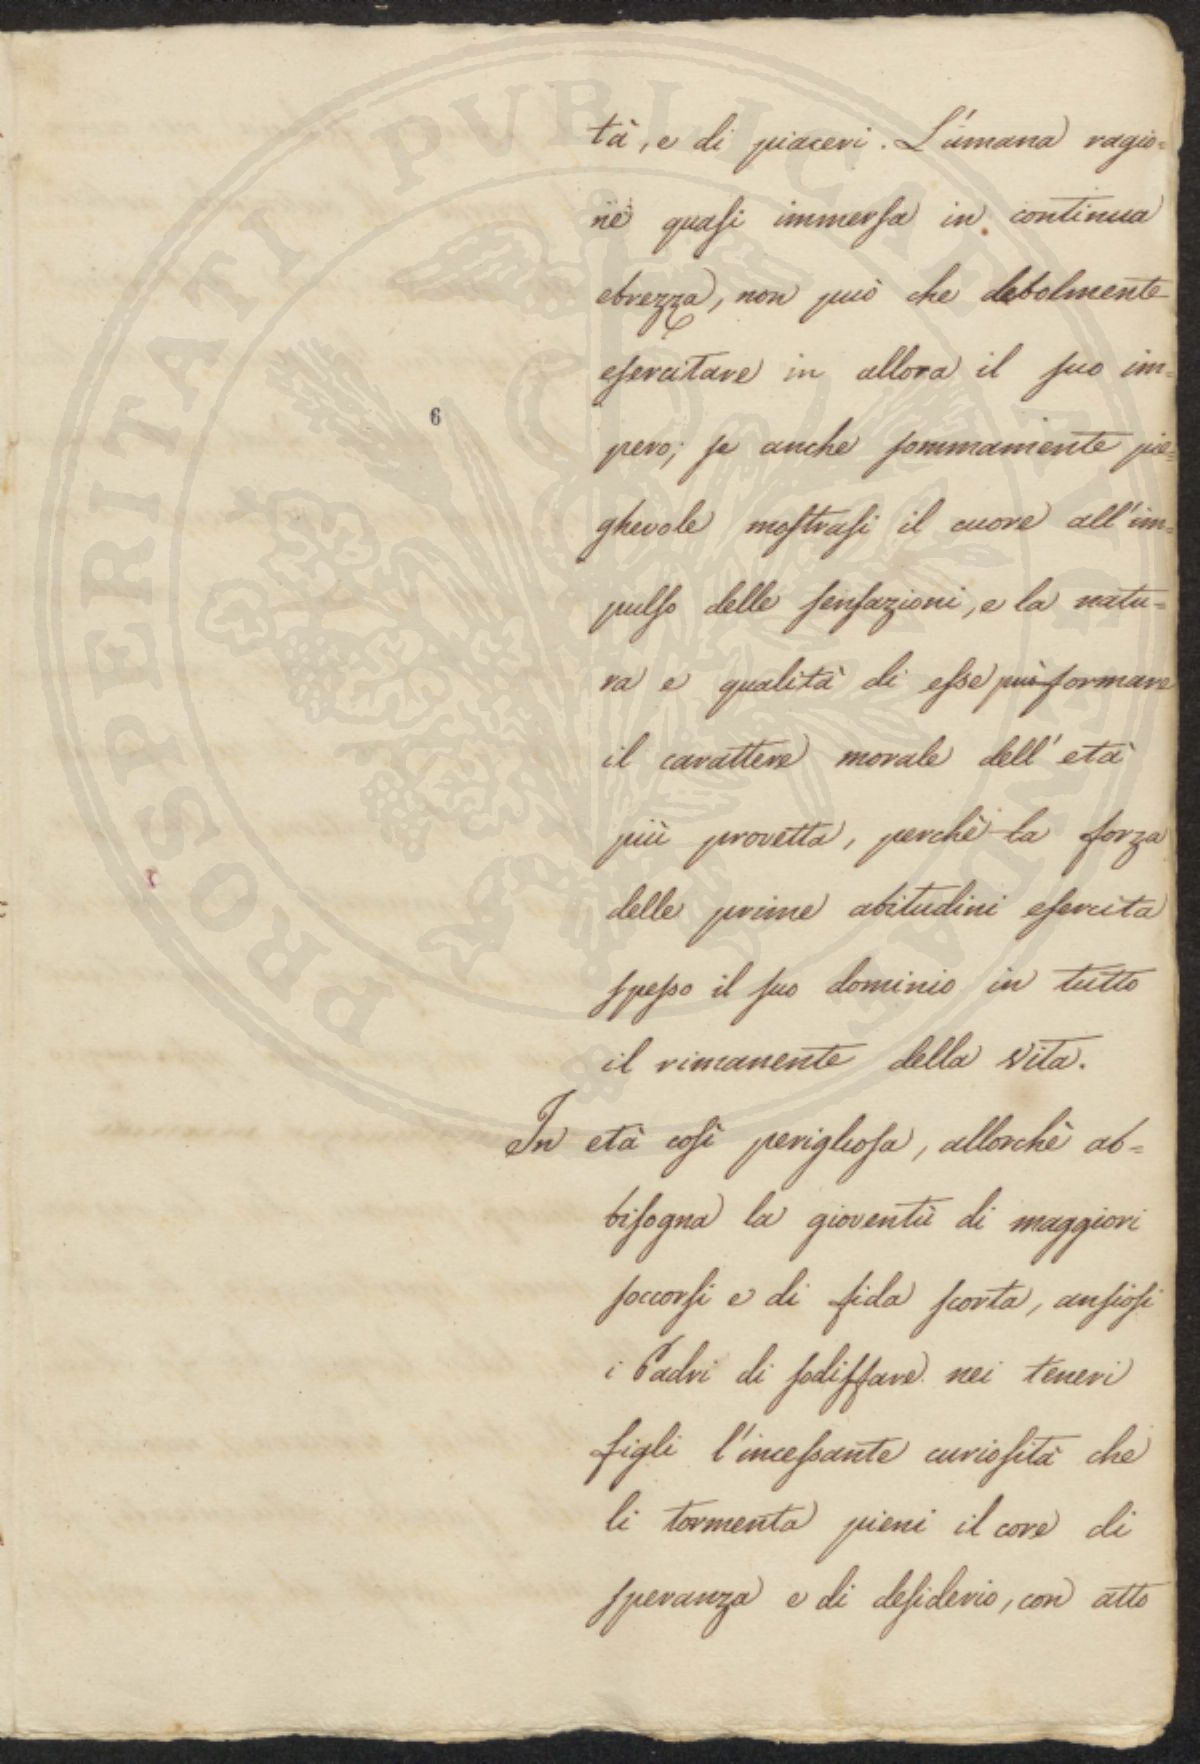 tà, e di piaceri. L'umana ragio=
ne quasi immersa in continua
ebrezza, non può che debolmente
esercitare in allora il suo im=
pero; se anche sommamente pie=
ghevole mostrasi il cuore all'im=
pulso delle sensazioni, e la natu=
ra e qualità di esse può formare
il carattere morale dell'età
più provetta, perchè la forza
delle prime abitudini esercita
spesso il suo dominio in tutto
il rimanente della vita.
In età così perigliosa, allorchè ab=
bisogna la gioventù di maggiori
soccorsi e di fida scorta, ansiosi
i Padri di sodisfare nei teneri
figli l'incessante curiosità che
li tormenta pieni il core di
speranza e di desiderio, con atto
6
PROSPERITATI PUBLICAE AUGENDAE